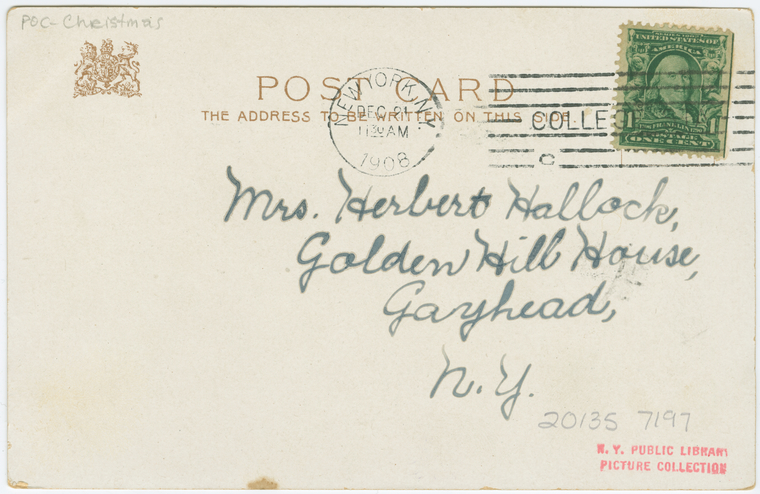 POC-Christmas
POST CARD
THE ADDRESS TO BE WRITTEN ON THIS SIDE
NEW YORK, N.Y.
DEC 21
11 30 AM
1908
COLLE
C
SERIES 1902
UNITED STATES OF
AMERICA
1 FRANKLIN 1
POSTAGE
ONE CENT
Mrs. Herbert Hallock,
Golden Hill House,
Gayhead,
N.Y.
20135 7197
N. Y. PUBLIC LIBRARY
PICTURE COLLECTION